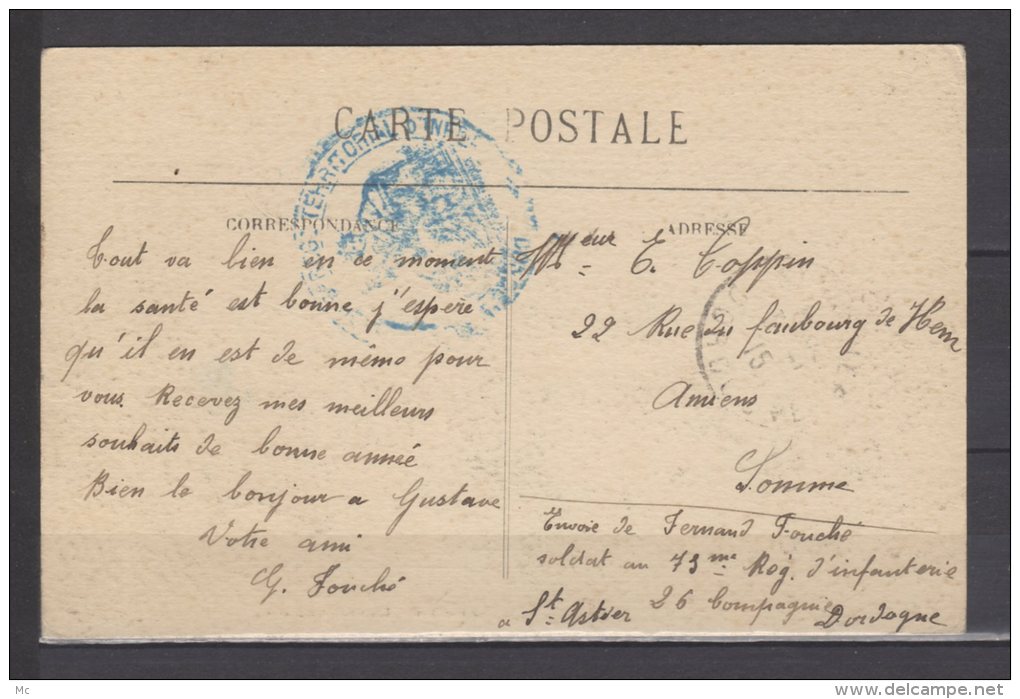 CARTE POSTALE
CORRESPONDANCE
Tout va bien en ce moment
la santé est bonne j'espere
qu'il en est de mémo pour
vous. Recevez mes meilleurs
souhaits de bonne année
Bien le bonjour a Gustave
Votre ami
G. Fouché
ADRESSE
Mr eur E. Toppin
22 Rue du faubourg de Hem
Amiens
Somme
Envoie de Fernand Fouché
soldat au 73me Reg. d'infanterie
26 Compagnie
a St Astier Dordogne
TERRITORIAL D'INF
15
Mc
www.delcampe.net